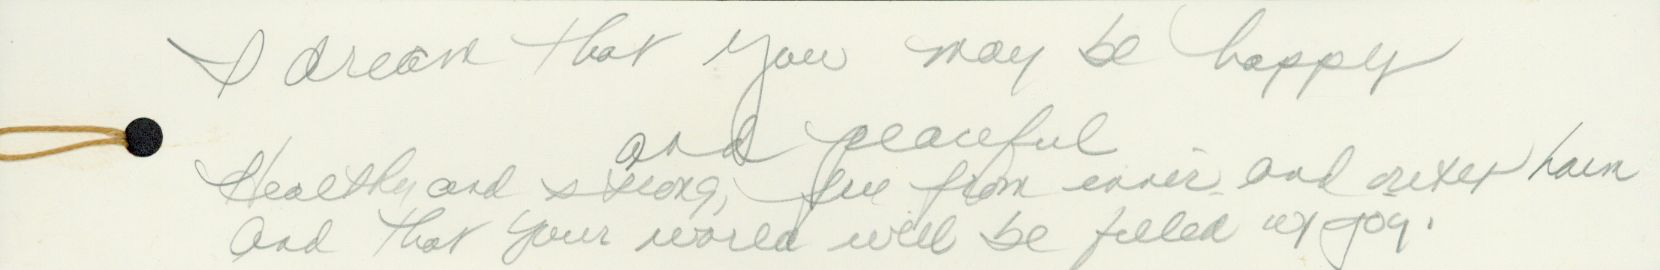 I dream that you may be happy
and peaceful
Healthy and strong, free from inner and outer harm
and that your world will be filled w/ joy.